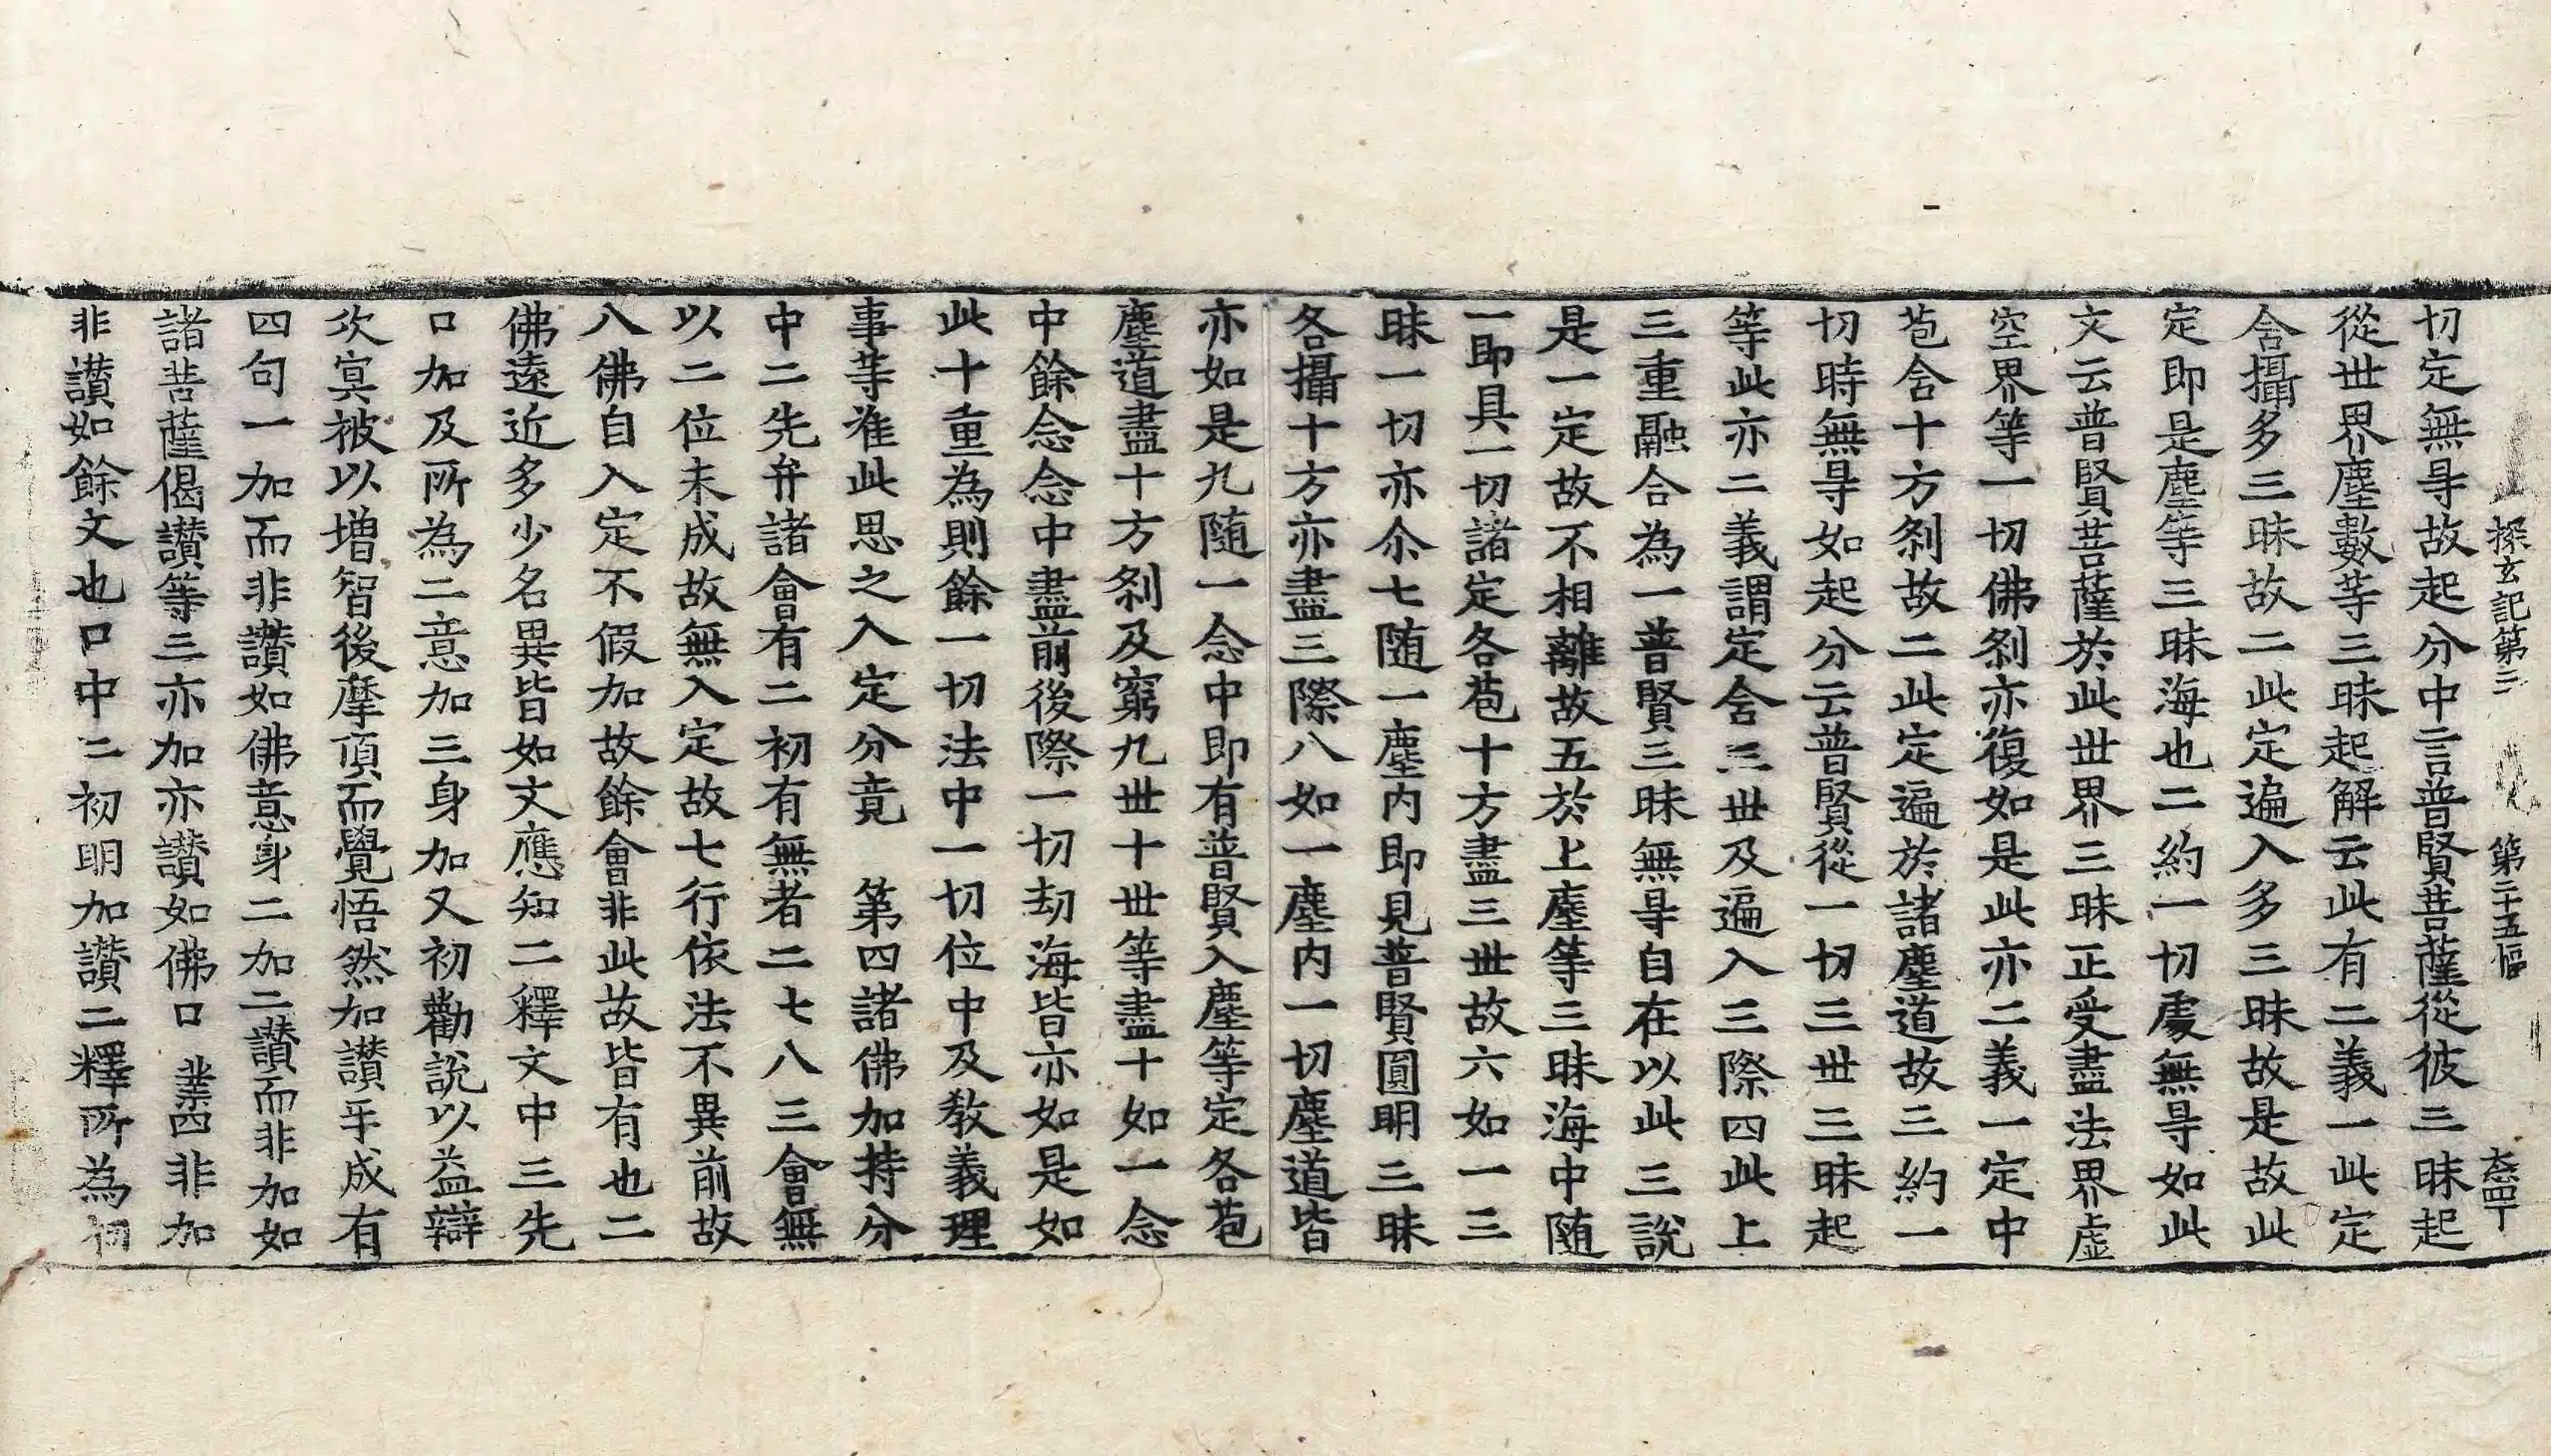 探玄記第三　第二十五幅　大丁
切定無㝵故起分中言普賢菩薩從彼三昧起
從世界塵數等三昧起解云此有二義一此定
含攝多三昧故二此定遍入多三昧故是故此
定即是塵等三昧海也二約一切處無㝵如此
文云普賢菩薩於此世界三昧正受盡法界虛
空界等一切佛刹亦復如是此亦二義一定中
苞含十方刹故二此定遍於諸塵道故三約一
切時無㝵如起分云普賢從一切三世三昧起
等此亦二義謂定含三世及遍入三際四此上
三重融合為一普賢三昧無㝵自在以此三說
是一定故不相離故五於上塵等三昧海中随
一即具一切諸定各苞十方盡三世故六如一三
昧一切亦尒七随一塵内即見普賢圓明三昧
各攝十方亦盡三際八如一塵内一切塵道皆
亦如是九随一念中即有普賢入塵等定各苞
塵道盡十方刹及窮九世十世等盡十如一念
中餘念念中盡前後際一切劫海皆亦如是如
此十重為則餘一切法中一切位中及教義理
事等准此思之入定分竟　第四諸佛加持分
中二先弁諸會有二初有無者二七八三會無
以二位未成故無入定故七行依法不異前故
八佛自入定不假加故餘會非此故皆有也二
佛遠近多少名異皆如文應知二釋文中三先
口加及所為二意加三身加又初勸說以益辯
次冥被以增智後摩頂而覺悟然加讃乎成有
四句一加而非讃如佛意身二加二讃而非加如
諸菩薩偈讃等三亦加亦讃如佛口業四非加
非讃如餘文也口中二初明加讃二釋所為初